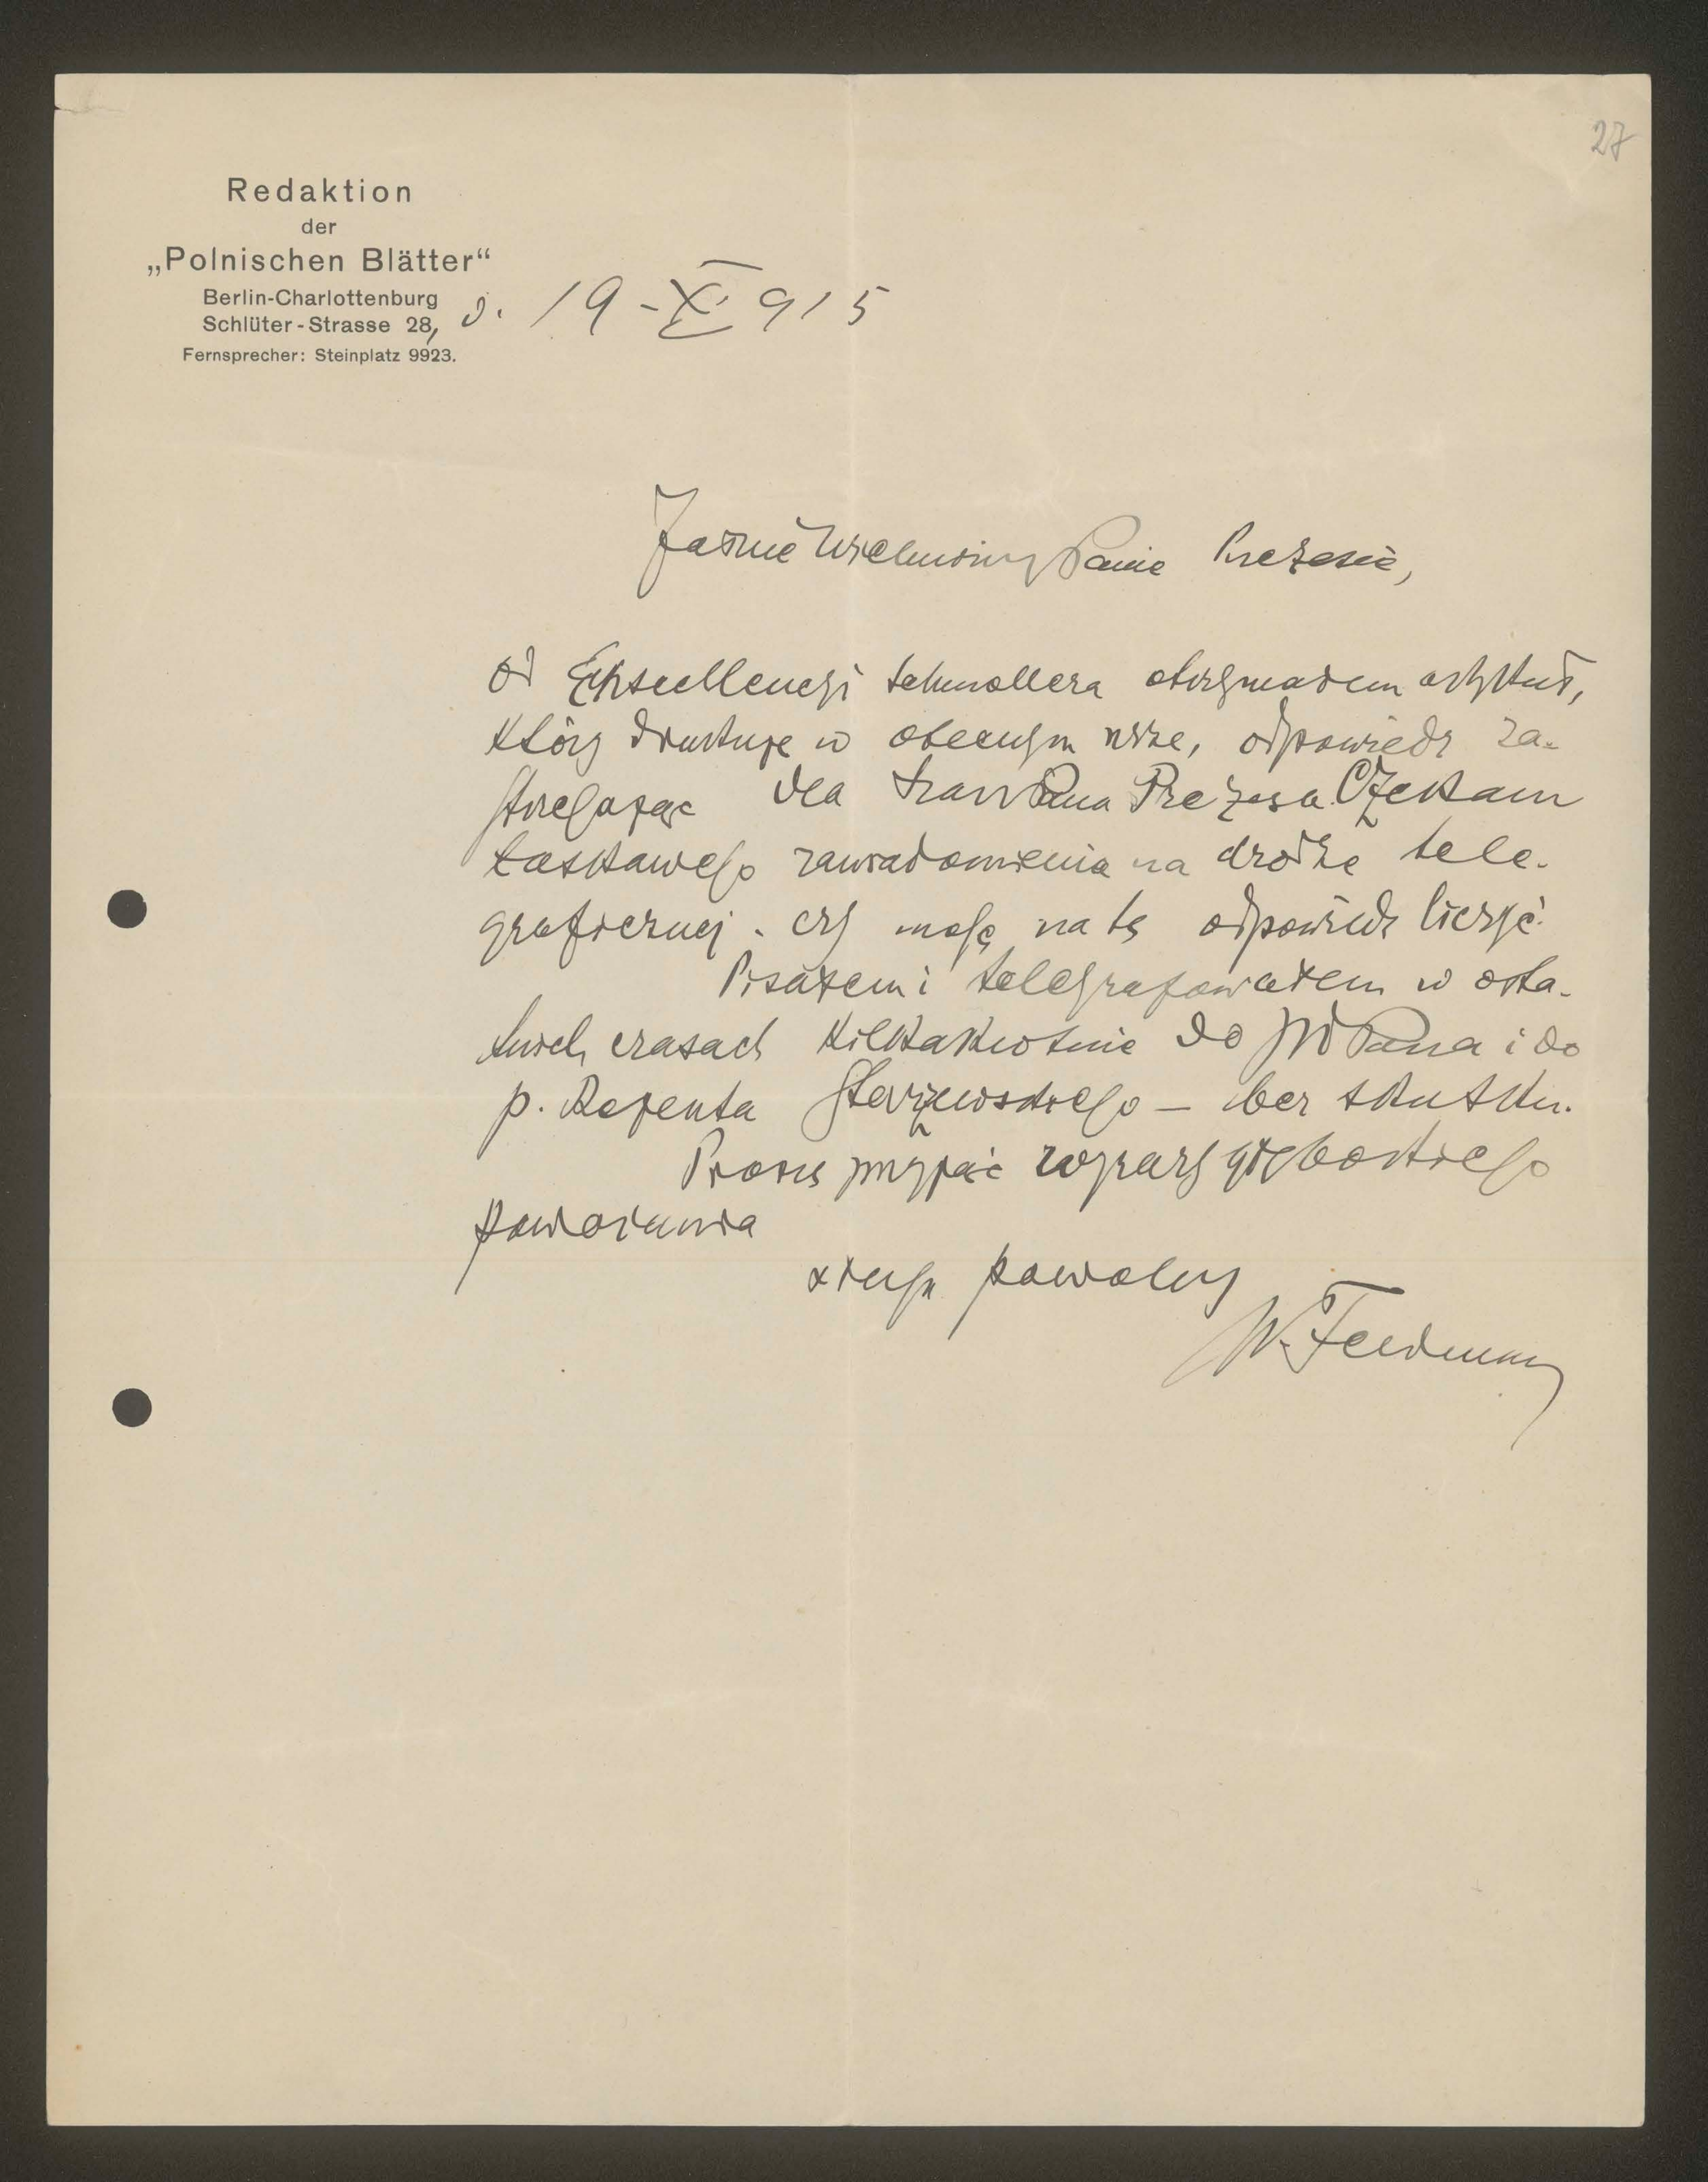 27
Redaktion
der
„Polnischen Blätter“
Berlin-Charlottenburg
Schlüter-Strasse 28, d. 19-X 915
Fernsprecher: Steinplatz 9923.
Jaśnie Wielmożny Panie Prezesie,
Od Ekscellencyi Schmollera otrzymałem artykuł,
który drukuję w obecnym nrze, odpowiedź za-
strzegając dla Pana Prezesa. Czekam
łaskawego zawiadomienia na drodze tele-
graficznej, czy mogę na tę odpowiedź liczyć.
Pisałem i telegrafowałem w osta-
tnich czasach kilkakrotnie do JW Pana i do
p. Rejenta – bez skutku.
Proszę przyjąć wyrazy głębokiego
poważania
sługa powolny
W. Feldman